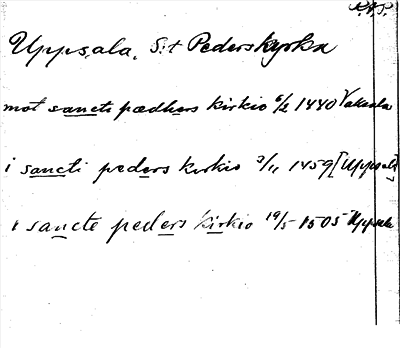 R.A.P.
Uppsala, S:t Peders kyrka
mot sancti pædhers kirkio 6/2 1440 Vaksala
i sancti peders kirkio 3/11 1459 [Uppsala]
i sancte peders kirkio 19/5 1505 Uppsala